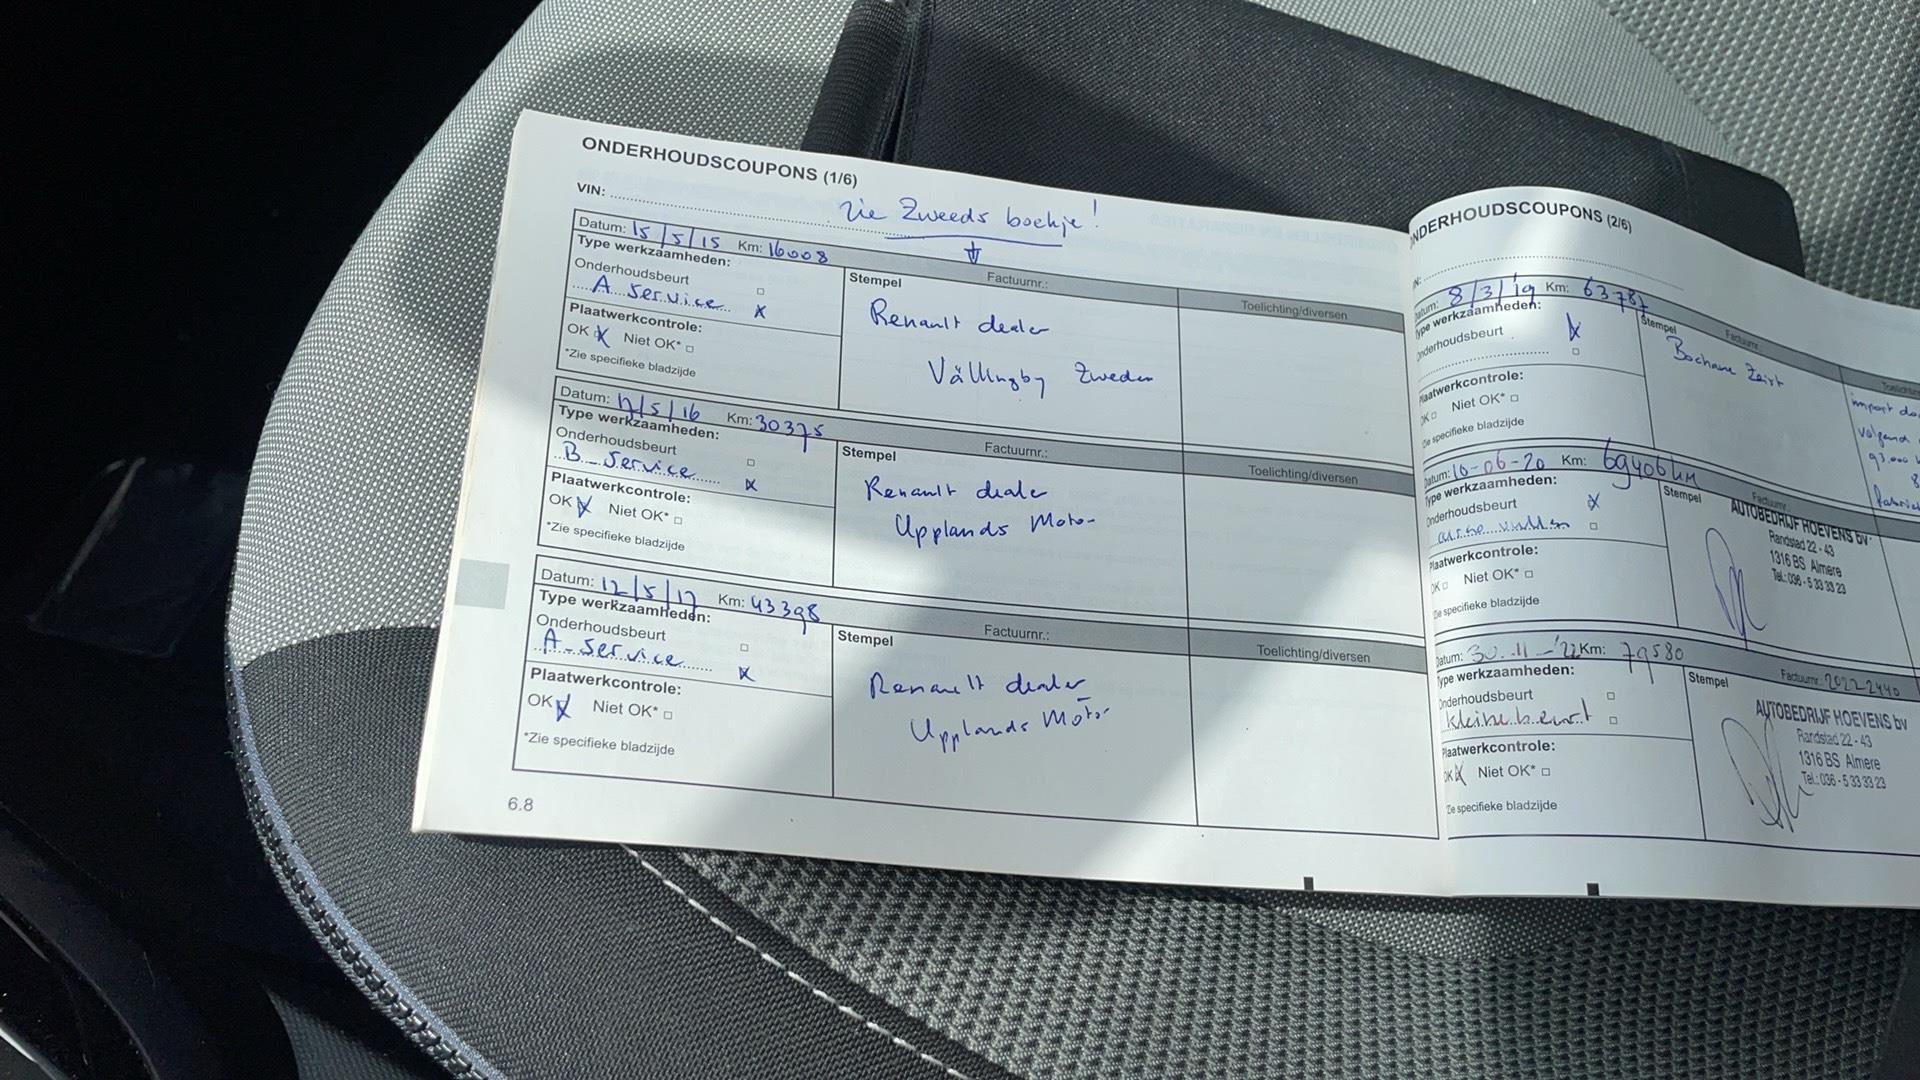 ONDERHOUDSCOUPONS (1/6)
VIN:
zie Zweeds boekje!
Datum: 15/5/15 Km: 16008
Type werkzaamheden:
Onderhoudsbeurt
A service x
Plaatwerkcontrole:
OK x Niet OK*
*Zie specifieke bladzijde
Stempel Factuurnr.: Toelichting/diversen
Renault dealer
Vällingby Zweden
Datum: 17/5/16 Km: 30375
Type werkzaamheden:
Onderhoudsbeurt
B-service x
Plaatwerkcontrole:
OK x Niet OK*
*Zie specifieke bladzijde
Stempel Factuurnr.: Toelichting/diversen
Renault dealer
Upplands Motor
Datum: 12/5/17 Km: 43398
Type werkzaamheden:
Onderhoudsbeurt
A-service x
Plaatwerkcontrole:
OK x Niet OK*
*Zie specifieke bladzijde
Stempel Factuurnr.: Toelichting/diversen
Renault dealer
Upplands Motor
6.8
ONDERHOUDSCOUPONS (2/6)
Datum: 8/3/'19 Km: 63787
Type werkzaamheden:
Onderhoudsbeurt x
Plaatwerkcontrole:
OK Niet OK*
Zie specifieke bladzijde
Stempel Factuurnr.
Bochane Zeist
import
volgend
93.000
Datum: 10-06-20 Km: 69406 km
Type werkzaamheden:
Onderhoudsbeurt x
Plaatwerkcontrole:
OK Niet OK*
Zie specifieke bladzijde
Stempel Factuurnr.
AUTOBEDRIJF HOEVENS bv
Randstad 22 - 43
1316 BS Almere
Tel.: 036 - 5 33 33 23
Datum: 30-11-'22 Km: 79580
Type werkzaamheden:
Onderhoudsbeurt
kleine beurt
Plaatwerkcontrole:
OK x Niet OK*
Zie specifieke bladzijde
Stempel Factuurnr. 2022-2440
AUTOBEDRIJF HOEVENS bv
Randstad 22 - 43
1316 BS Almere
Tel.: 036 - 5 33 33 23